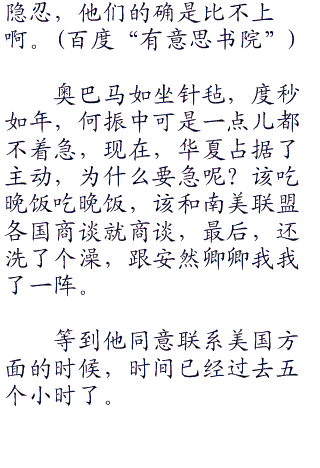 隐忍，他们的确是比不上
啊。(百度“有意思书院”)
奥巴马如坐针毡，度秒
如年，何振中可是一点儿都
不着急，现在，华夏占据了
主动，为什么要急呢？该吃
晚饭吃晚饭，该和南美联盟
各国商谈就商谈，最后，还
洗了个澡，跟安然卿卿我我
了一阵。
等到他同意联系美国方
面的时候，时间已经过去五
个小时了。